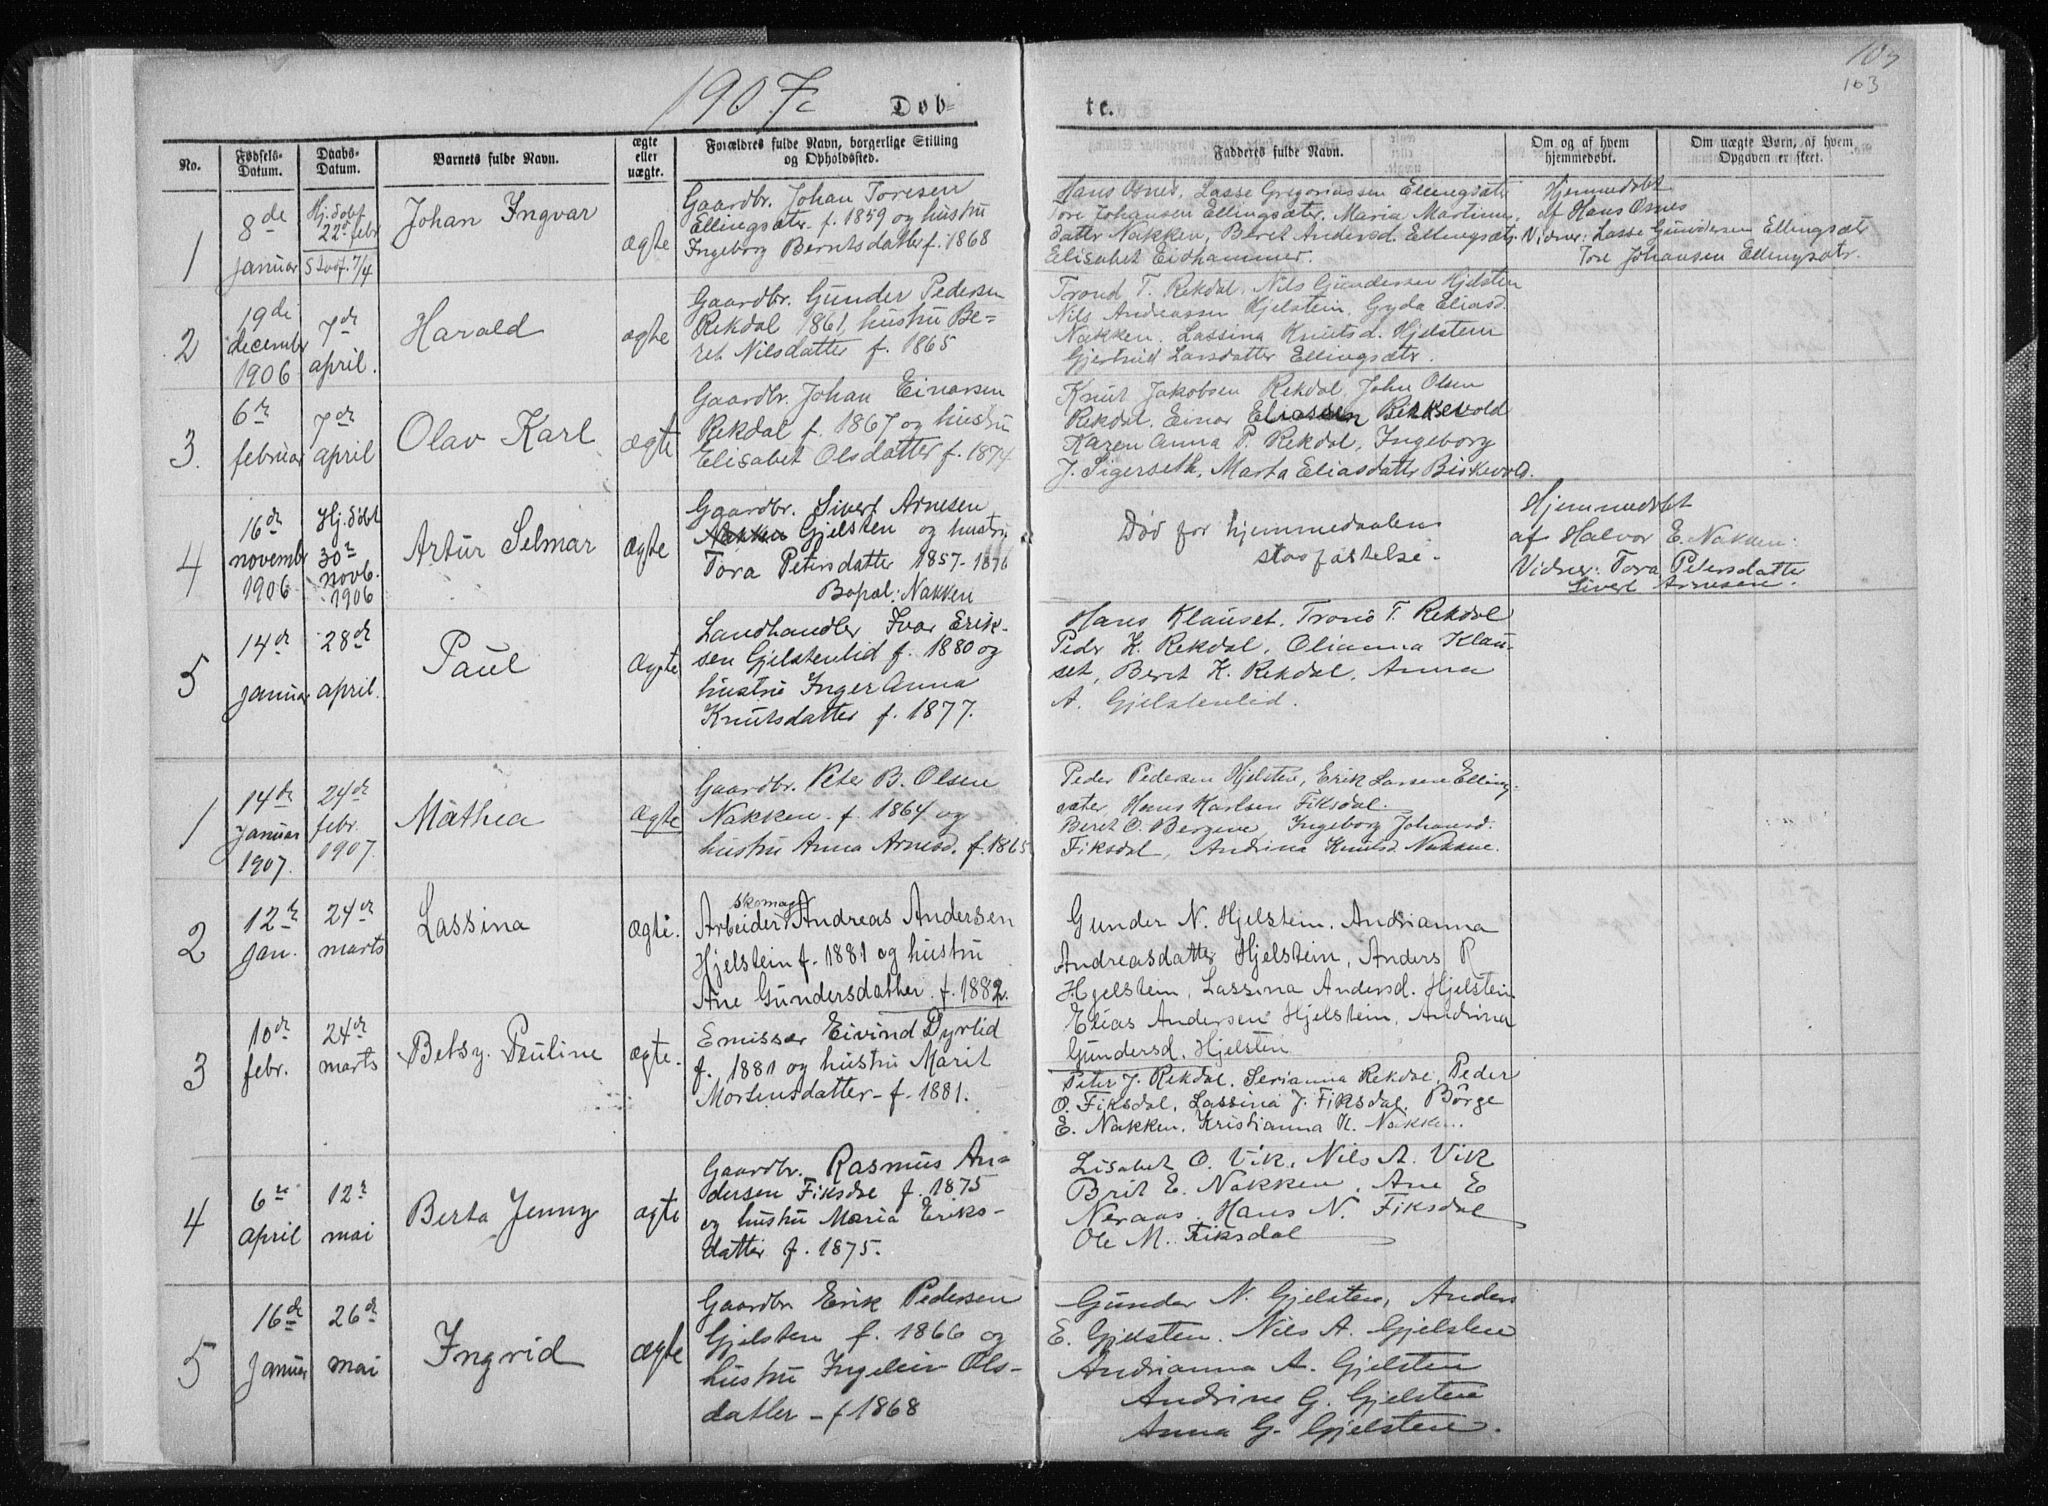 1907.
Døb-
te.
103
103
No.
Fødsels-
Datum.
Daabs-
Datum.
Barnets fulde Navn.
ægte
eller
uægte.
Forældres fulde Navn, borgerlige Stilling
og Opholdssted.
Fadderes fulde Navn.
Om og af hvem
hjemmedøbt.
Om uægte Børn, af hvem
Opgaven er skeet.
1
8de
januar
Hj.døbt
22d febr
7/4
Johan Ingvar
ægte
Gaardbr. Johan Toresen
Ellingsæter f. 1859 og hustru
Ingeborg Berntsdatter f. 1868
Hans Osnes, Lasse Gregoriassen Ellingsæter
Tore Johansen Ellingsæter. Maria Martinus-
datter Nakken, Beret Andersd. Ellingsæt.
Elisabet Eidhammer.
Hjemmedøbt
af Hans Osnes
Vidner: Lasse Gundersen Ellingsæter
Tore Johansen Ellingsætr.
2
19de
decembr
1906
7de
april.
Harald
ægte
Gaardbr. Gunder Pedersen
Rekdal 1861, hustru Be=
ret Nilsdatter f. 1865
Trond T. Rekdal, Nils Gundersen Hjelsten
Nils Andreassen Hjelstein, Gyda Eliasd.
Nakken. Lassina Knutsd. Hjelstein
Gjertrud Larsdatter Ellingsætr.
3.
6te
februar
7de
april
Olav Karl
ægte
Gaardbr. Johan Einarsen
Rekdal f. 1867 og hustru
Elisabet Olsdatter f. 1874
Knut Jakobsen Rekdal, John Olsen
Rekdal. Einar Eliassen Birkevold
Karen Anna P. Rekdal, Ingeborg
J. Sigerseth, Marta Eliasdatter Birkevold.
4
16de
novembr
1906
Hj.døbt
30te
novb.
1906
Artur Selmar
ægte
Gaardbr. Sivert Arnesen
Nakken Gjelsten og hustru
Tora Petersdatter 1857-1876
Bopæl: Nakken
Død før hjemmedaabens
stadfæstelse.
Hjemmedøbt
af Halvor E. Nakken.
Vidner: Tora Petersdatter
Sivert Arnesen.
5
14de
januar
28de
april.
Paul
ægte
Landhandler Ivar Erik-
sen Gjelstenlid f. 1880 og
hustru Inger Anna
Knutsdatter f. 1877.
Hans Klauset. Trond T. Rekdal
Peder K. Rekdal, Olianna Klau-
set, Beret K. Rekdal, Anna
A. Gjelstenlid.
1
14de
januar
1907.
24de
febr.
1907.
Mathea
ægte
Gaardbr. Peter B. Olsen
Nakken f. 1864 og
hustru Anna Arnesd. f. 1865
Peder Pedersen Hjelsten, Erik Larsen Elling-
sæter, Hans Karlsen Fiksdal.
Beret O. Bergene, Ingeborg Johansd.
Fiksdal, Andrina Knutsd. Nakken.
2
12te
jan.
24de
marts
Lassina
ægte.
skomager
Arbeider Andreas Andersen
Hjelstein f. 1881 og hustru
Ane Gundersdatter f. 1882.
Gunder N. Hjelstein. Andrianna
Andreasdatter Hjelstein, Anders R
Hjelstein, Lassina Andersd. Hjelstein
Elias Andersen Hjelstein, Andrina
Gundersd. Hjelsten
3
10de
febr.
24de
marts
Betsy Pauline
ægte.
Emissær Eivind Dyrlid
f. 1881 og hustru Marit
Mortensdatter f. 1881.
Peter J. Rekdal. Serianna Rekdal, Peder
O. Fiksdal, Lassina J. Fiksdal. Børge
E. Nakken, Kristianna K. Nakken.
4
6te
april
12te
mai
Berta Jenny
ægte
Gaardbr. Rasmus An=
dersen Fiksdal f. 1875
og hustru Maria Eriks-
datter f. 1875.
Lisabet O. Vik, Nils A. Vik
Brit E. Nakken, Ane E
Neraas. Hans N. Fiksdal
Ole M. Fiksdal
5
16de
januar
26de
mai
Ingrid
ægte
Gaardbr Erik Pedersen
Gjelsten f. 1866 og
hustru Ingeleiv Ols-
datter - f 1868
Gunder N. Gjelsten, Anders
E. Gjelsten. Nils A. Gjelsten
Andrianna A. Gjelsten
Andrine G. Gjelsten
Anna G. Gjelsten.